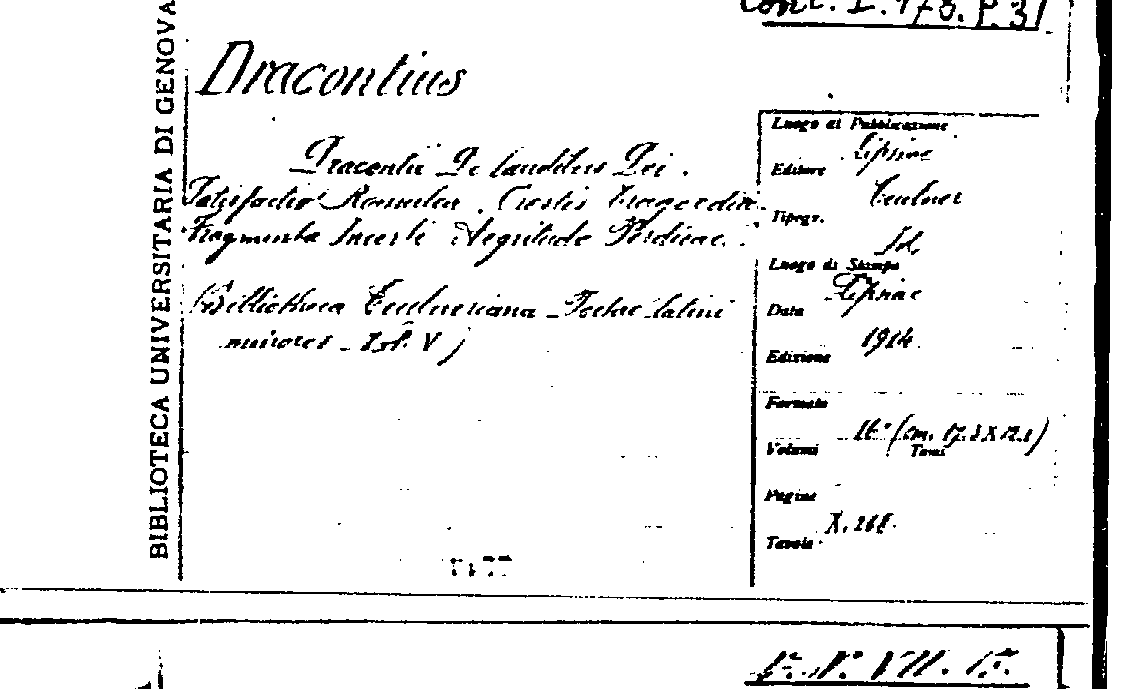 BIBLIOTECA UNIVERSITARIA DI GENOVA
Dracontius
Dracontii De laudibus Dei.
Satisfactio Romulea. Orestis tragoedia.
Fragmenta Incerti Aegritudo Perdicae.
(Bibliotheca Teubneriana - Poetae latini
minores - Vol. V)
Luogo di Pubblicazione
Lipsiae
Editore
Teubner
Tipogr.
Id.
Luogo di Stampa
Lipsiae
Data
1914
Edizione
Formato
16° (cm.
Volumi
Tomi
Pagine
X. 268.
Tavole
VII. 15.